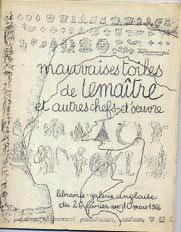 mauvaises toiles
de lemaître
et autres chefs-d'oeuvre
librairie-galerie anglaise
du 26 février au 10 mars 1966